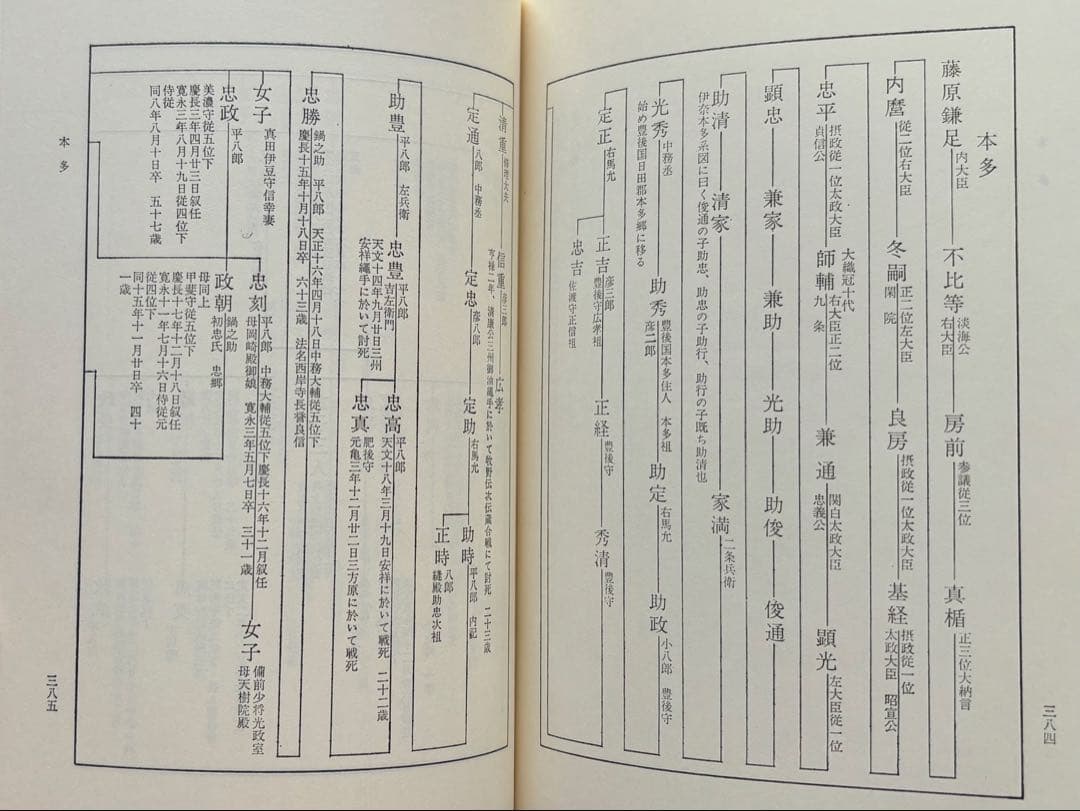 本多
藤原鎌足 内大臣
不比等 淡海公 右大臣
房前 参議従三位
真楯 正三位大納言
内麿 従二位右大臣
冬嗣 正二位左大臣 閑院
良房 摂政従一位太政大臣
基経 摂政従一位 太政大臣 昭宣公
忠平 摂政従一位太政大臣 貞信公
師輔 大織冠十代 右大臣正二位 九条
兼通 関白太政大臣 忠義公
顕光 左大臣従一位
顕忠
兼家
兼助
光助
助俊
俊通
助清
伊奈本多系図に曰く俊通の子助忠、助忠の子助行、助行の子既ち助清也
清家
家満 二条兵衛
光秀 中務丞
始め豊後国日田郡本多郷に移る
助秀 豊後国本多住人 本多祖 彦二郎
助定 右馬允
助政 小八郎 豊後守
定正 右馬允
正吉 彦三郎 豊後守広孝祖
正経 豊後守
秀清 豊後守
忠吉 佐渡守正信祖
三八四
清重 修理大夫
信重 彦三郎
亨禄二年、清康公三州御油縄手に於いて牧野伝次伝蔵合戦にて討死 二十三歳
広孝
定通 八郎 中務丞
定忠 彦八郎
定助 右馬允
助時 平八郎 内記
正時 八郎 縫殿助忠次祖
助豊 平八郎 左兵衛
忠豊 平八郎 吉左衛門
天文十四年九月廿日三州
安祥縄手に於いて討死
忠高 平八郎
天文十八年三月十九日安祥に於いて戦死 二十二歳
忠真 肥後守
元亀三年十二月廿二日三方原に於いて戦死
忠勝 鍋之助 平八郎 天正十六年四月十八日中務大輔従五位下
慶長十五年十月十八日卒 六十三歳 法名西岸寺長誉良信
女子 真田伊豆守信幸妻
忠政 平八郎
美濃守従五位下
慶長三年四月廿三日叙任
寛永三年八月十九日従四位下
侍従
同八年八月十日卒 五十七歳
忠刻 平八郎 中務大輔従五位下慶長十六年十二月叙任
母岡崎殿御娘 寛永三年五月七日卒 三十一歳
女子 備前少将光政室
母天樹院殿
政朝 鍋之助
初忠氏 忠郷
母同上
甲斐守従五位下
慶長十七年十二月十八日叙任
寛永十一年七月十六日侍従元
従四位下
同十五年十一月廿日卒 四十
一歳
本多
三八五